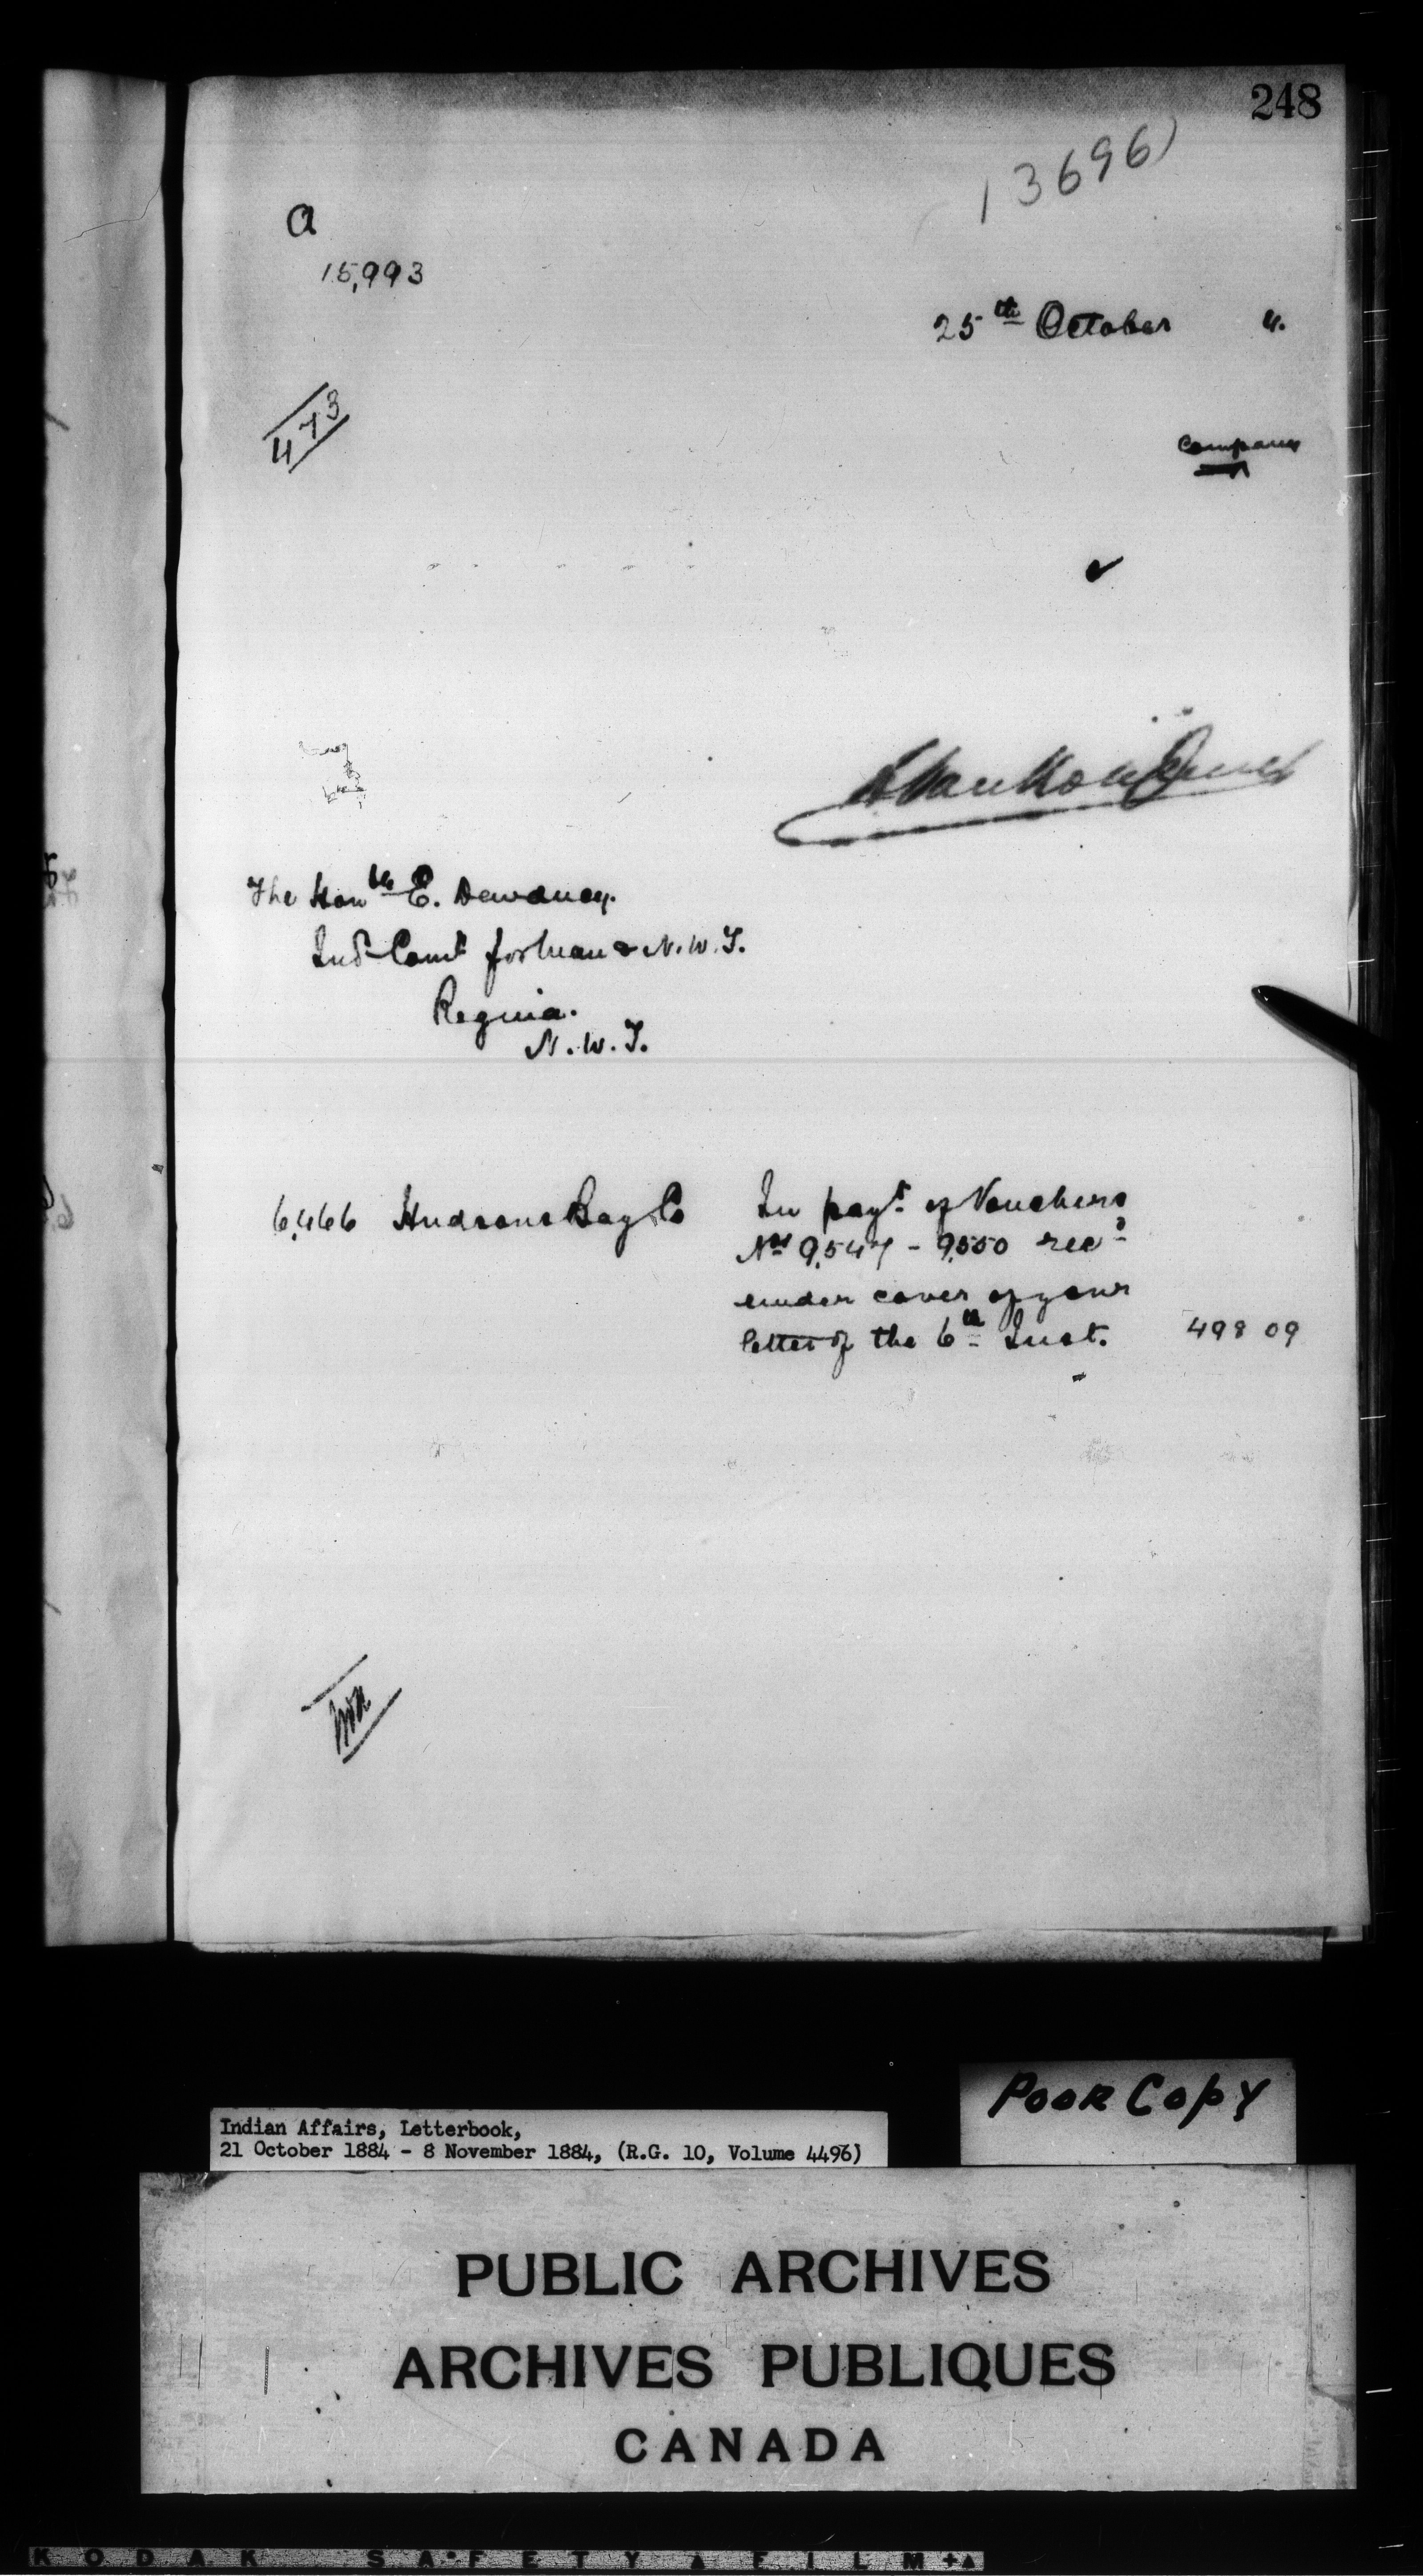 248
13696)
a
15,993
25th October 4.
473
Company
L VanKoughnet
The Honble E. Dewdney.
Ind Comr for Man & N.W.T.
Regina.
N.W.T.
6,466 Hudsons Bay Co In payt of Vouchers
Nos 9,547 - 9,550 recd
under cover of your
letter of the 6th Inst. 498 09
Indian Affairs, Letterbook,
21 October 1884 - 8 November 1884, (R.G. 10, Volume 4496)
POOR COPY
PUBLIC ARCHIVES
ARCHIVES PUBLIQUES
CANADA
KODAK SAFETY FILM